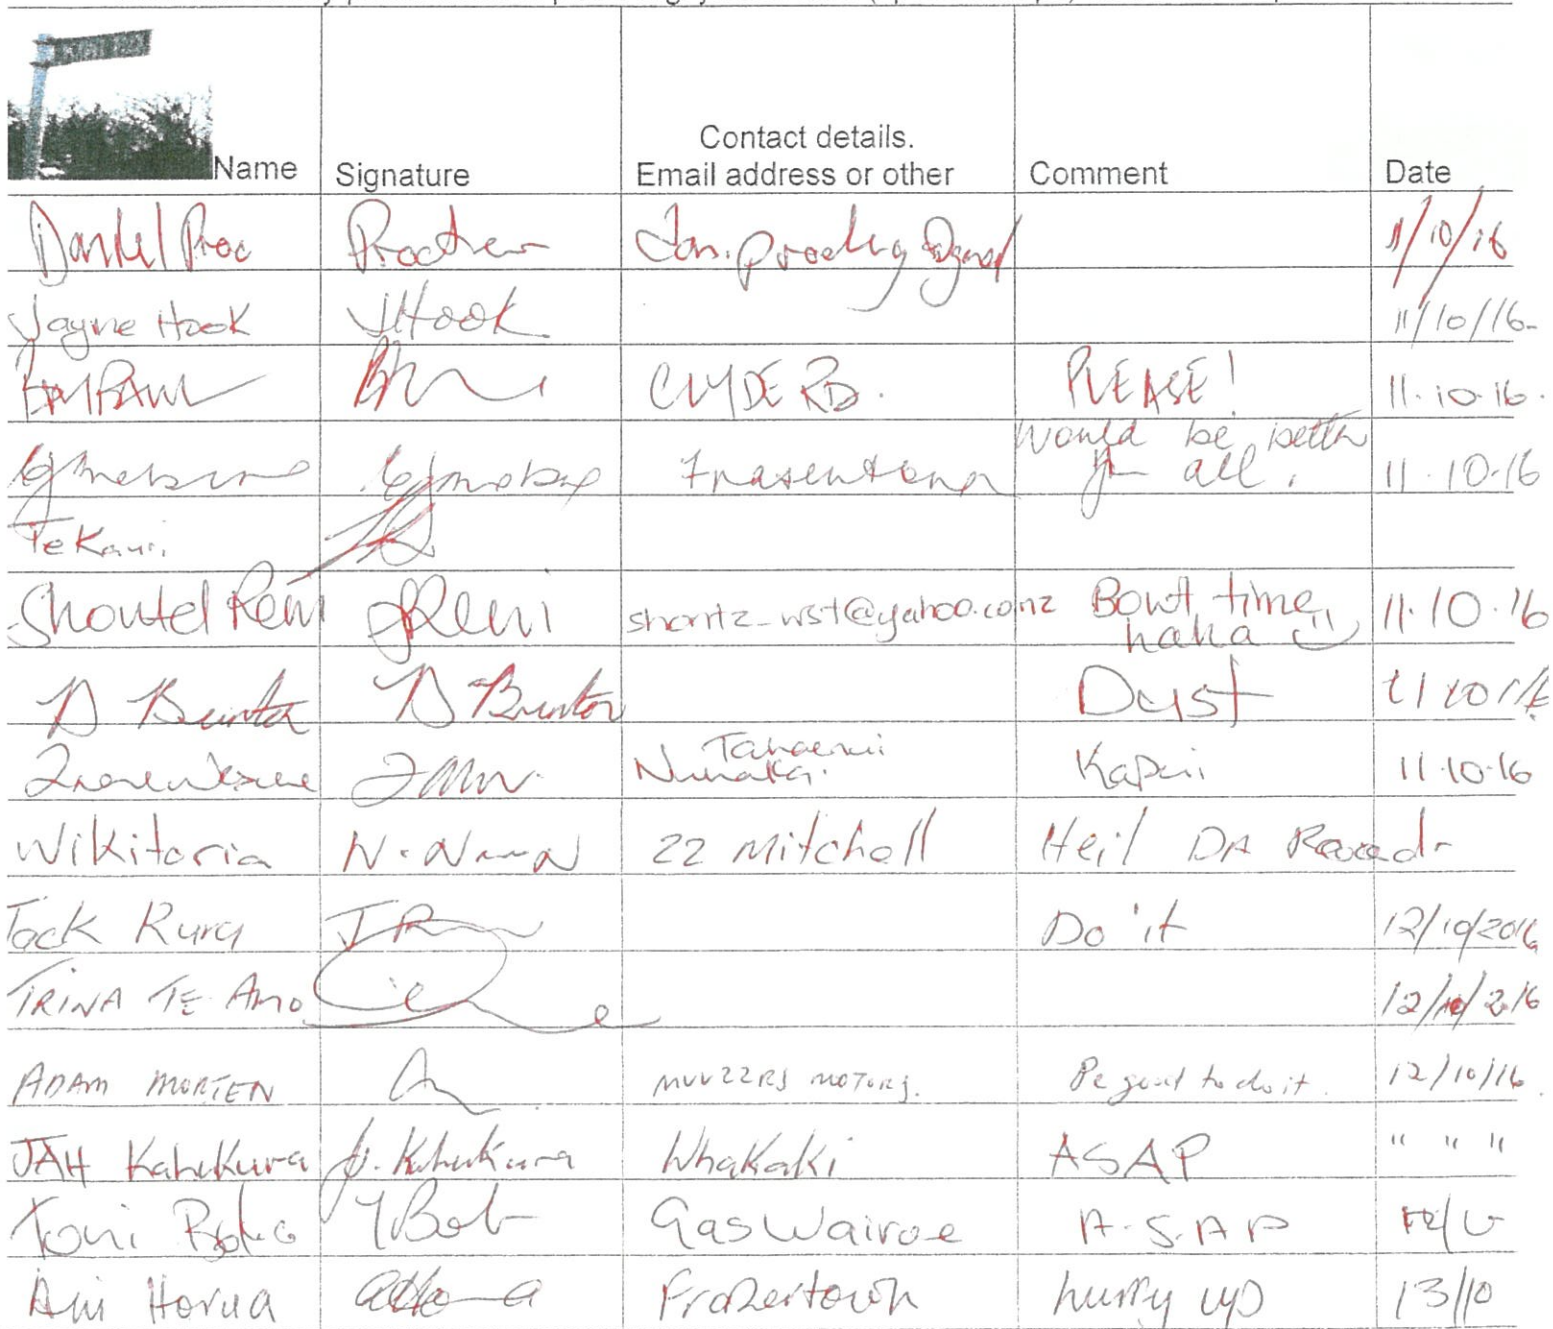 Contact details.
Name Signature Email address or other Comment Date
Daniel Proc Procter 11/10/16
Jayne Hook JHook 11/10/16
CLYDE RD. PLEASE! 11.10.16.
Would be better
for all. 11.10.16
Te Kauri
Shontel Reni SReni shontz_wst@yahoo.co.nz Bowt time
haha
11.10.16
D Bunton D Bunton Dust
Nuhaka. Kapai 11.10.16
Wikitoria 22 Mitchell Heil DA Rowed
Tock Kura Do it 12/10/2016
TRINA TE AMO
ADAM MORTEN MUVZZRS MOTORS. Be good to do it. 12/10/16
JAH Kahukura J. Kahukura Whakaki ASAP " " "
Toni Gas Wairoa A.S.A.P
Ani Horua Frasertown hurry up 13/10